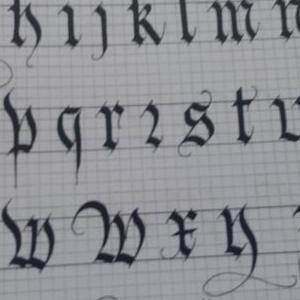 h i j k l m n
p q r ꝛ s t u
w w x y